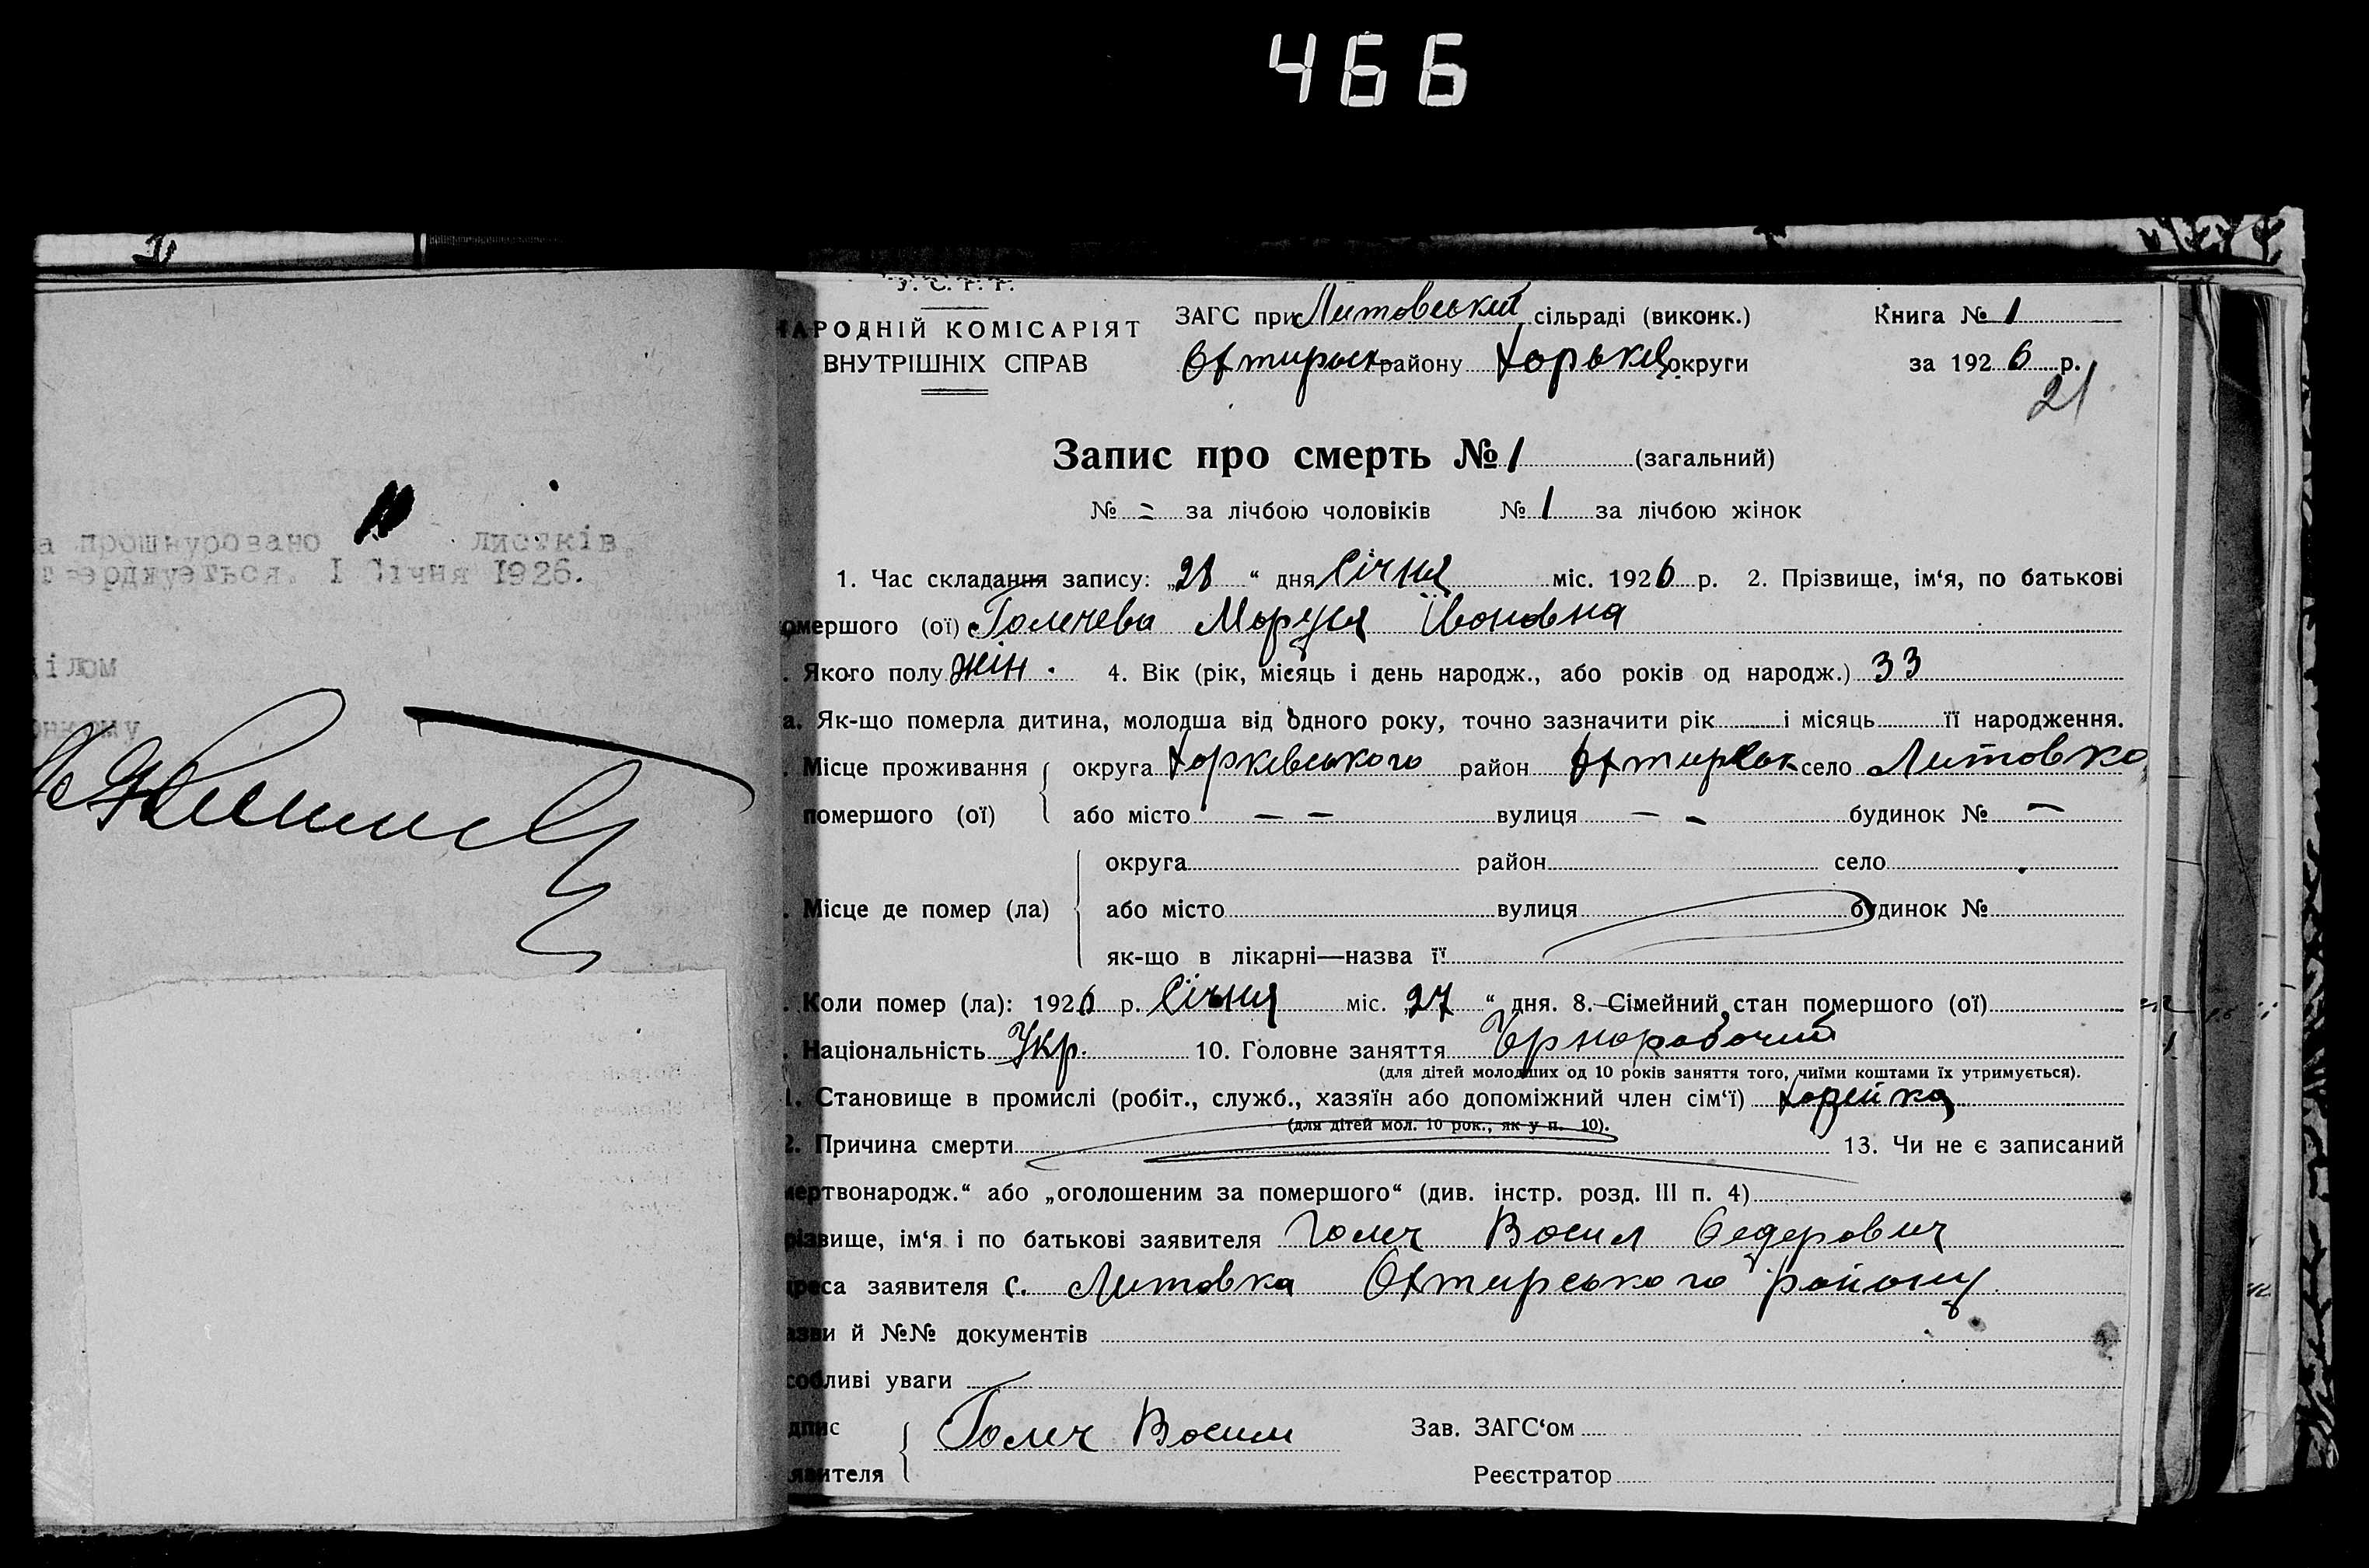 466
У. С. Р. Р.
НАРОДНІЙ КОМІСАРІЯТ
ВНУТРІШНІХ СПРАВ
ЗАГС при Литовський сільраді (виконк.)
Охтирськ району Харьков округи
Книга № 1
за 1926 р.
21
Запис про смерть № 1 (загальний)
№ - за лічбою чоловіків № 1 за лічбою жінок
а прошнуровано листків
тверджується. I Січня 1926.
ілом
1. Час складання запису: „28“ дня Січня міс. 1926 р. 2. Прізвище, ім‘я, по батькові
омершого (ої) Маруся Ивановна
. Якого полу жін. 4. Вік (рік, місяць і день народж., або років од народж.) 33
а. Як-що померла дитина, молодша від одного року, точно зазначити рік і місяць її народження.
. Місце проживання округа Харківського район Охтирськ село Литовка
помершого (ої) або місто – – вулиця – – будинок № –
округа район село
. Місце де помер (ла) або місто вулиця будинок №
як-що в лікарні—назва її
. Коли помер (ла): 1926 р. Січня міс. „27“ дня. 8. Сімейний стан помершого (ої)
. Національність Укр. 10. Головне заняття Чорноробочий
(для дітей молодших од 10 років заняття того, чиїми коштами їх утримується).
1. Становище в промислі (робіт., служб., хазяїн або допоміжний член сім‘ї) Хазяйка
(для дітей мол. 10 рок., як у п. 10).
2. Причина смерти 13. Чи не є записаний
мертвонародж.“ або „оголошеним за помершого“ (див. інстр. розд. III п. 4)
різвище, ім‘я і по батькові заявителя Голич Васил Федерович
дреса заявителя с. Литовка Охтирського району
азви й №№ документів
собливі уваги
дпис Голич Васил Зав. ЗАГС‘ом
явителя Реєстратор